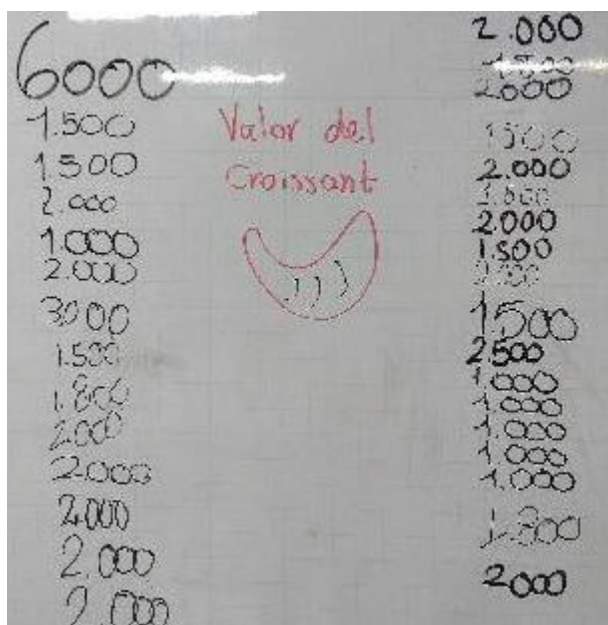 6000
1.500
1.500
2.000
1.000
2.000
3000
1.500
1.800
2.000
2.000
2.000
2.000
2.000
Valor del
Croissant
2.000
2.000
1500
2.000
2.000
1.500
1500
2500
1.000
1.000
1.000
1.000
1.000
1.800
2000